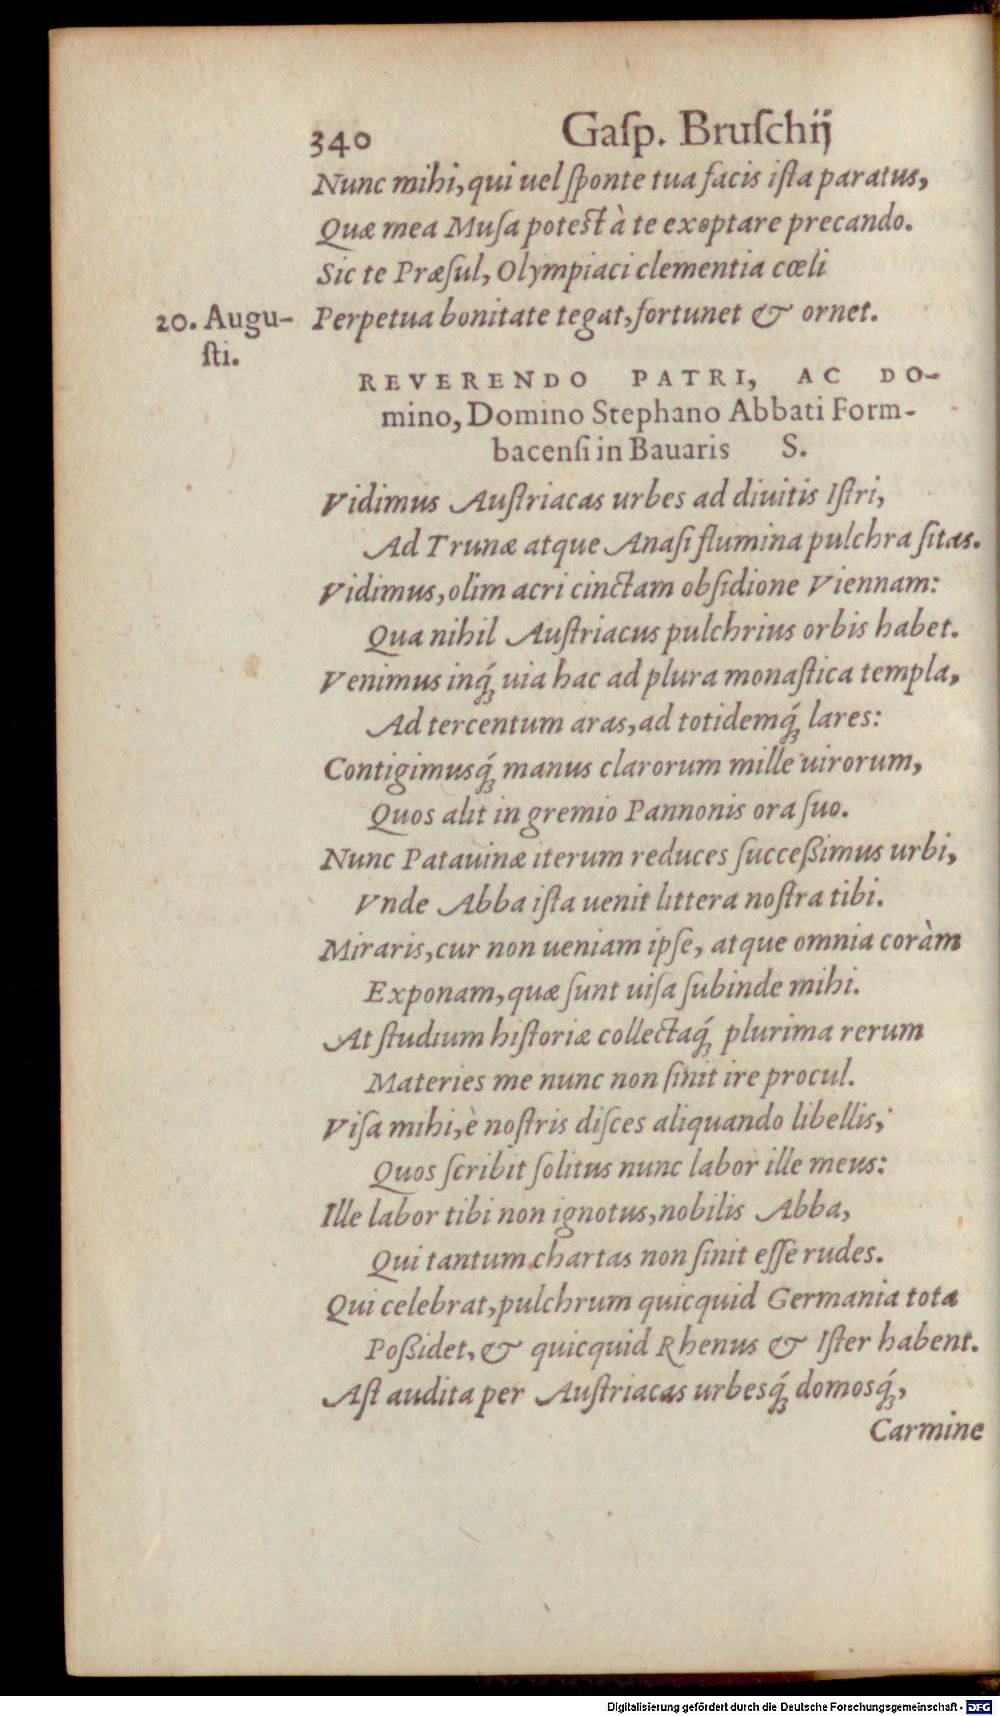 340 Gaſp. Bruſchij
Nunc mihi, qui uel ſponte tua facis iſta paratus,
Quæ mea Muſa potest à te exoptare precando.
Sic te Præſul, Olympiaci clementia cœli
20. Augu- Perpetua bonitate tegat, fortunet & ornet.
ſti.
REVERENDO PATRI, AC DO-
mino, Domino Stephano Abbati Form-
bacenſi in Bauaris S.
Vidimus Auſtriacas urbes ad diuitis Iſtri,
Ad Trunæ atque Anaſi flumina pulchra ſitas.
Vidimus, olim acri cinctam obſidione Viennam:
Qua nihil Auſtriacus pulchrius orbis habet.
Venimus inq́; uia hac ad plura monaſtica templa,
Ad tercentum aras, ad totidemq́; lares:
Contigimusq́; manus clarorum mille uirorum,
Quos alit in gremio Pannonis ora ſuo.
Nunc Patauinæ iterum reduces ſucceßimus urbi,
Vnde Abba iſta uenit littera noſtra tibi.
Miraris, cur non ueniam ipſe, atque omnia coràm
Exponam, quæ ſunt uiſa ſubinde mihi.
At ſtudium hiſtoriæ collectaq́; plurima rerum
Materies me nunc non ſinit ire procul.
Viſa mihi, è noſtris diſces aliquando libellis,
Quos ſcribit ſolitus nunc labor ille meus:
Ille labor tibi non ignotus, nobilis Abba,
Qui tantum chartas non ſinit eſſe rudes.
Qui celebrat, pulchrum quicquid Germania tota
Poßidet, & quicquid Rhenus & Iſter habent.
Aſt audita per Auſtriacas urbesq́; domosq́;,
Carmine
Digitalisierung gefördert durch die Deutsche Forschungsgemeinschaft - DFG